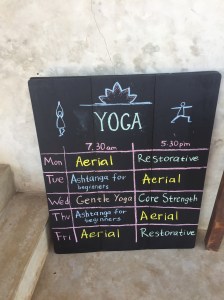 YOGA
7.30am 5:30pm
Mon Aerial Restorative
Tue Ashtanga for beginners Aerial
Wed Gentle Yoga Core Strength
Thu Ashtanga for beginners Aerial
Fri Aerial Restorative